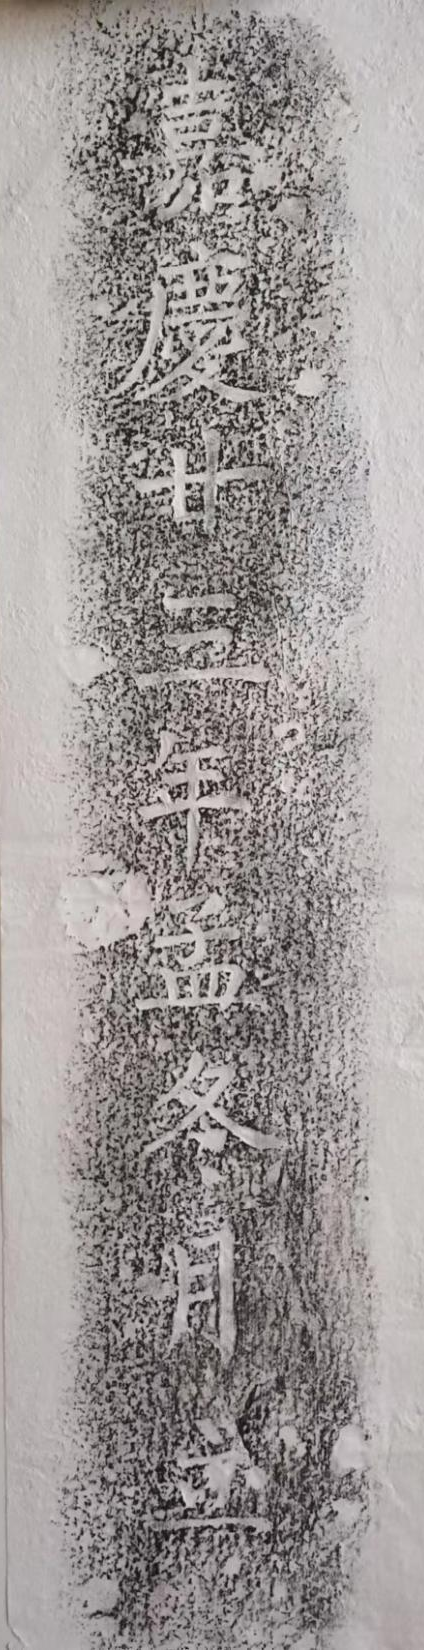 嘉慶廿三年孟冬月立